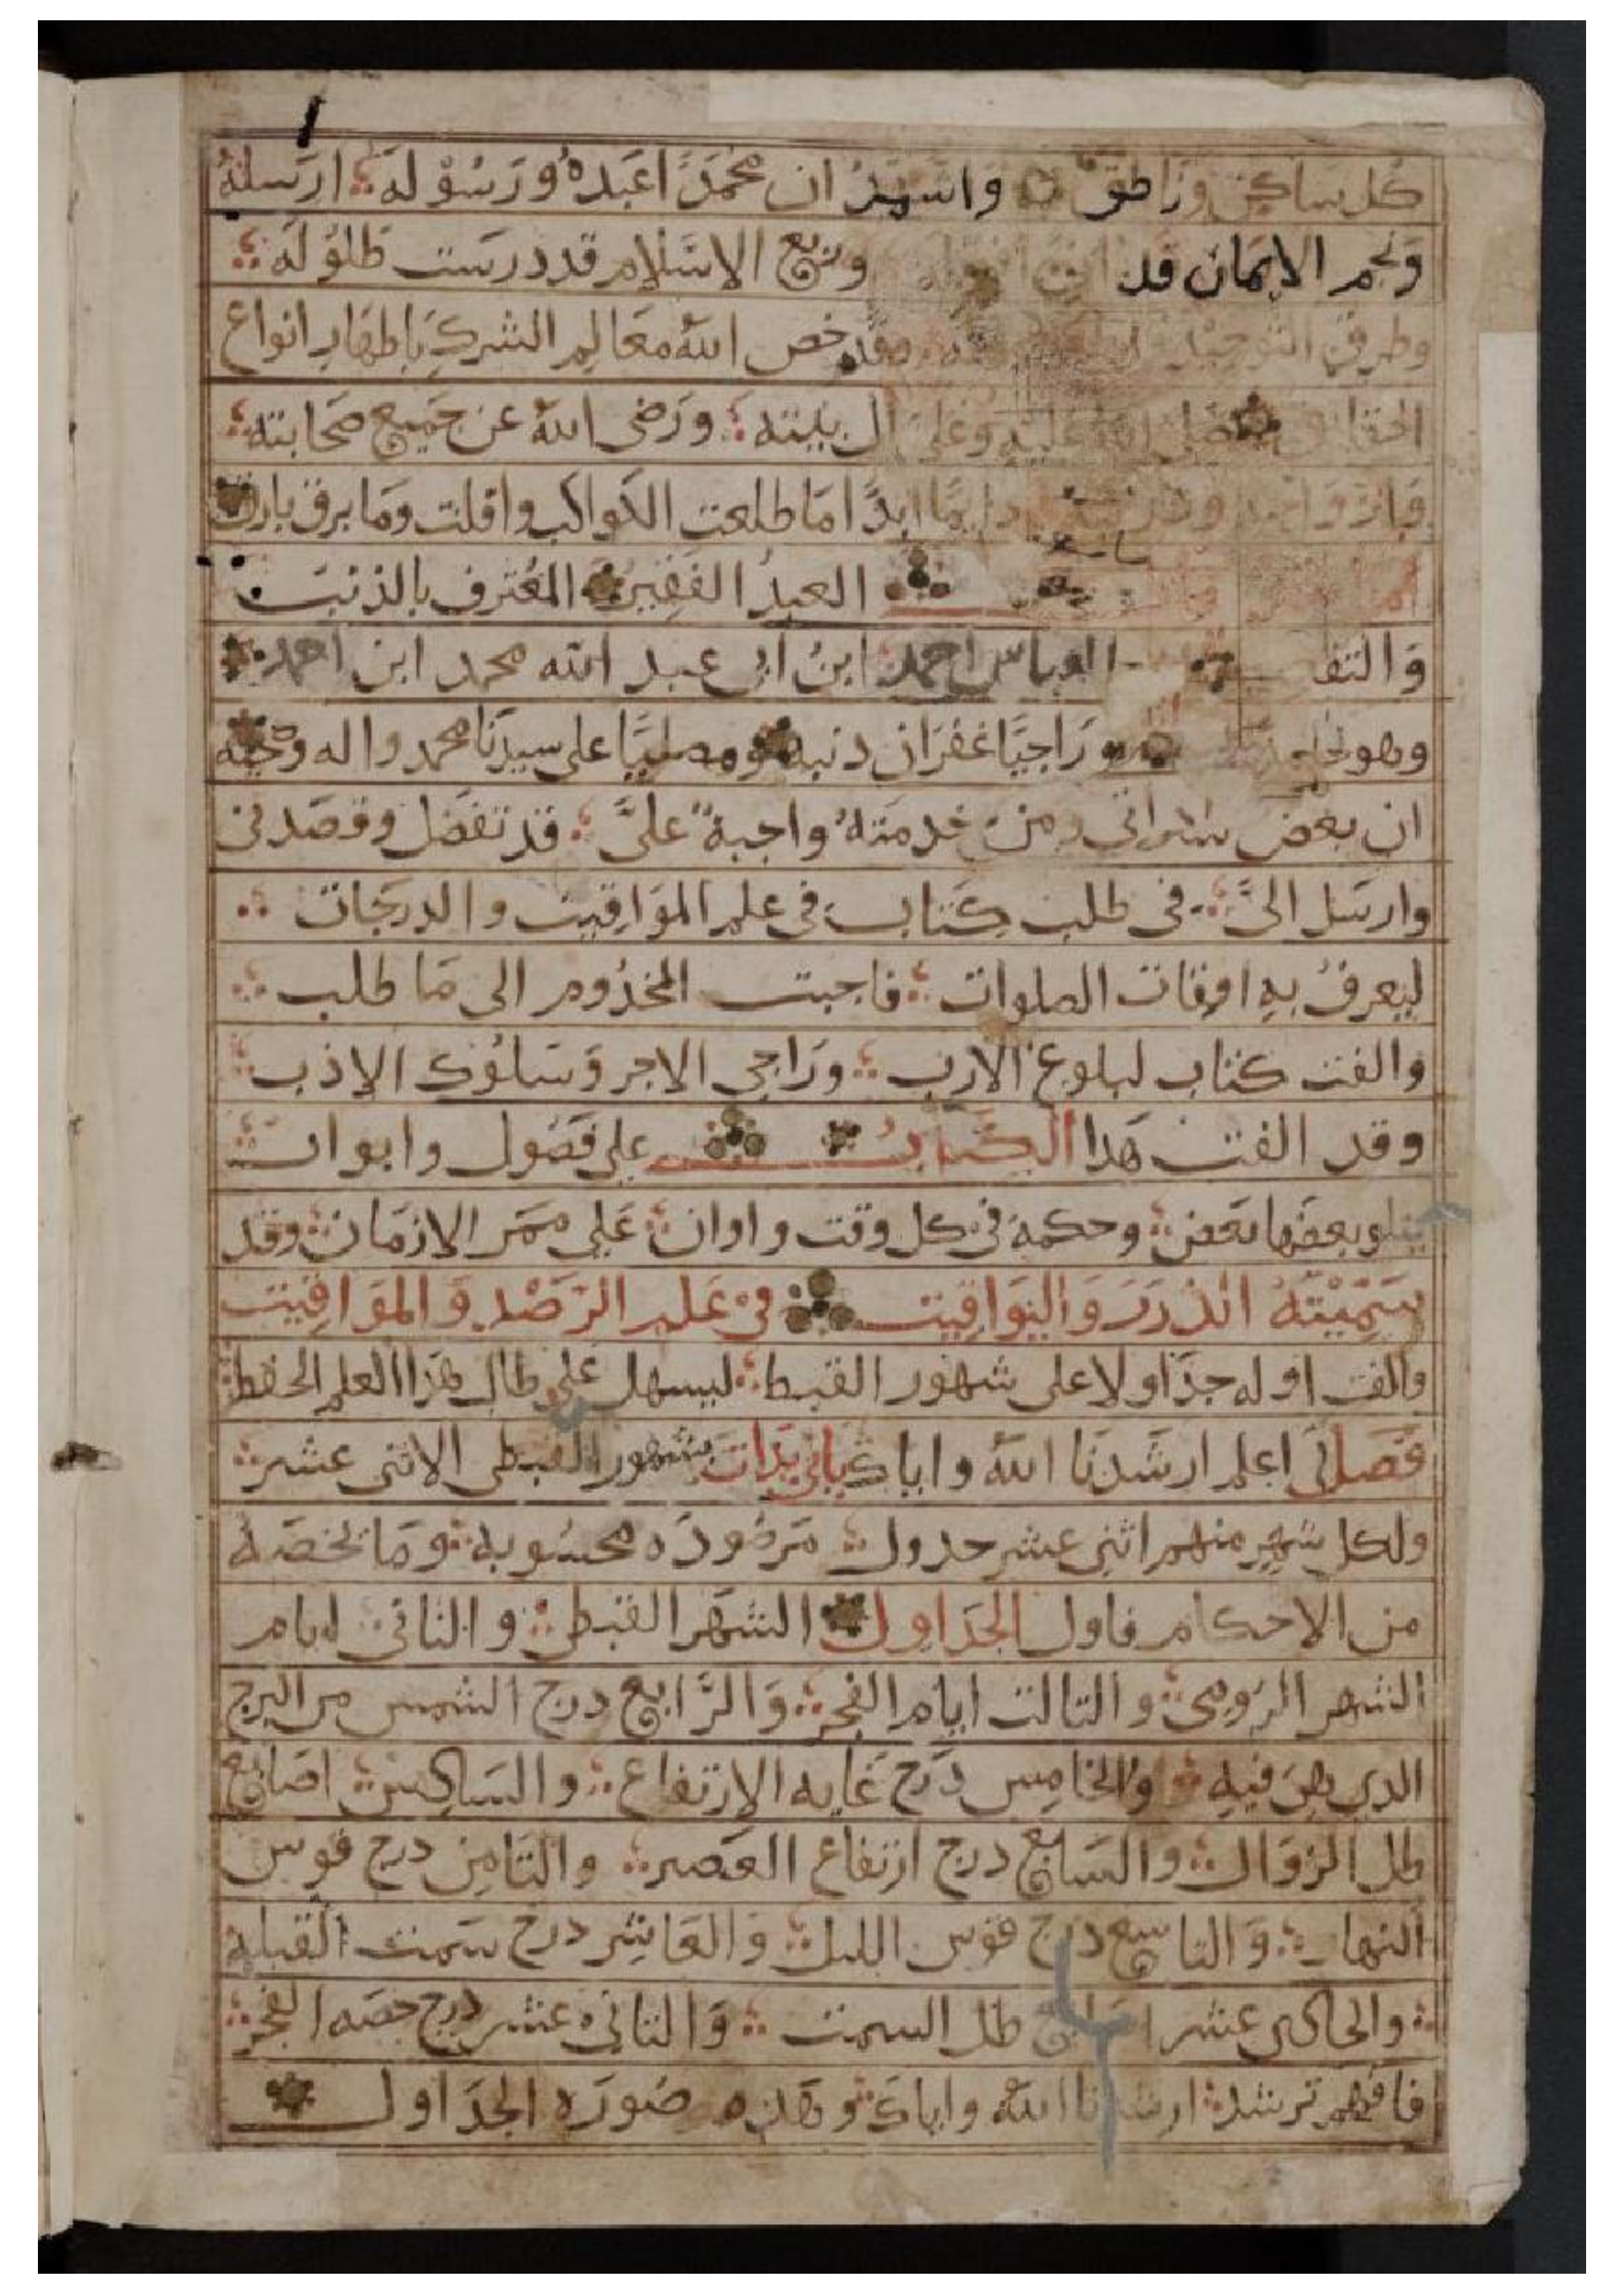 كل ساكن وناطق واشهد ان محمدًا عبدهُ ورسُوله ارسلهُ
ونجم الايمان قد وربع الاسلام قد درست طلوله
وطرق التوحيد وقد خص اللهُ معالم الشرك باظهار انواع
الحقايق صلى الله عليه وعلى ال بيته ورضى اللهُ عن جميع صحابته
دايمًا ابدًا ما طلعت الكواكب وافلت وما برق بارق
العبدُ الفقير المعُترف بالذنب
والتقصير العباس احمد ابنُ ابى عبد الله محمد ابن احمد
وهو راجيًا غفران دنبه ومصليًا على سيدنا محمد واله وصحبه
ان بعض ومن خدمتهُ واجبةٌ علىَّ قد تفضل وقصدنى
وارسل الىَّ فى طلب كتاب فى علم المواقيت والدرجات
ليعرفُ به اوقات الصلوات فاجبت المخدُوم الى ما طلب
والفت كتاب لبلوغ الارب وراجى الاجر وسلوُك الادب
وقد الفت هدا الكتابُ على فصُول وابواب
يتلو بعضها بعض وحكمة فى كل وقت واوان على ممر الازمان وقد
سَمَّيْتهُ الدُررَ وَاليوَاقيت فى علم الرَصْد وَالموَاقيت
والفت اوله جداولا على شهور القبط ليسهل على طالب هذا العلم الحفظ
فصل اعلم ارشدنا اللهُ واياك بانى بدات بشهور القبطى الاثنى عشر
ولكل شهر منهم اثنى عشر جدول مرصُوده محسُوبه وما يخصهُ
من الاحكام فاول الجداول الشهر القبطى والثانى ايام
الشهر الروُمى والتالت ايام الفجر وَالرَّابع درج الشمس من البرج
الدى هى فيه والخامس درج غايه الارتفاع والسادس اصابع
ظل الزوال والسابع درج ارتفاع العصر والتامن درج قوس
النهار وَالتاسع درج قوس الليل وَالعاشر درج سمت القبلة
والحادى عشر اصابع ظل السمت وَالتانى عشر درج حصه الفجر
فافهم ترشد ارشدنا اللهُ واياك وهذه صُورَه الجداول